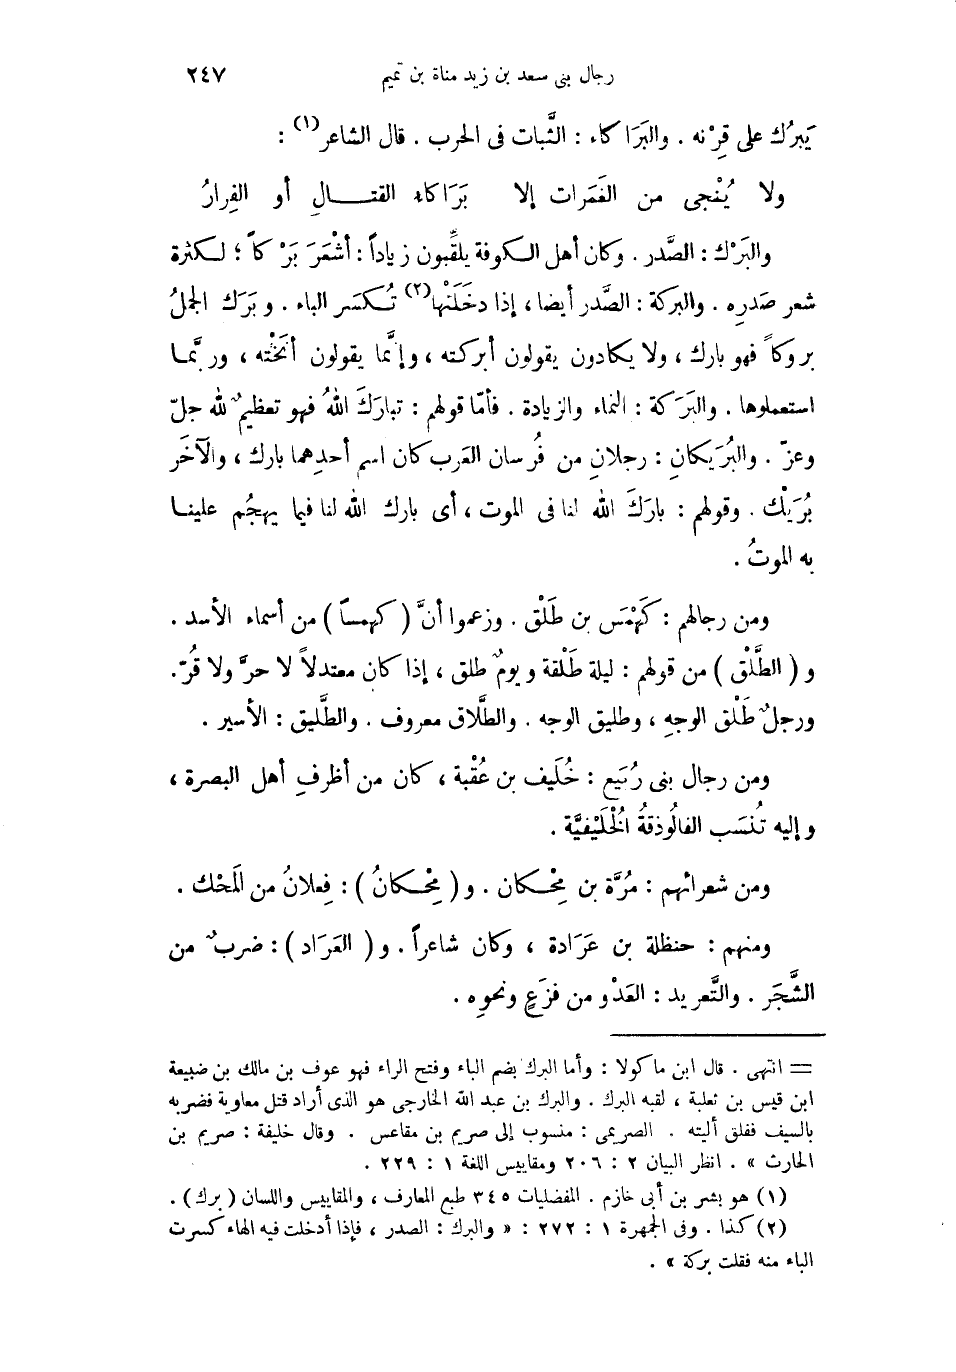 رجال بنى سعد بن زيد مناة بن تميم ٢٤٧
يَبرُك على قِرْنه . والبَرَاكاء : الثَّبات فى الحرب . قال الشاعر(١) :
ولا يُنْجى من الغَمَرات إلا بَرَاكاء القتـال أو الفِرارُ
والبَرْك : الصَّدر . وكان أهل الكوفة يلقِّبون زياداً : أشْعَرَ بَرْكاً ؛ لكثرة
شعر صَدره . والبركة : الصَّدر أيضا ، إذا دخَلَتْها(٢) تُكسَر الباء . وبَرَك الجملُ
بروكاً فهو بارك ، ولا يكادون يقولون أبركته ، وإنَّما يقولون أنَخْته ، وربَّما
استعملوها . والبَرَكة : النماء والزيادة . فأمّا قولهم : تبارَكَ اللهُ فهو تعظيمٌ لله جلّ
وعزّ . والبُرَيكانِ : رجلانِ من فُرسان العَرب كان اسم أحدِهما بارك ، والآخَر
بُرَيْك . وقولهم : بارَكَ الله لنا فى الموت ، أى بارك الله لنا فيما يهجُم علينا
به الموتُ .
ومن رجالهم : كَهْمَس بن طَلْق . وزعموا أنَّ ( كهمساً ) من أسماء الأسد .
و ( الطَّلْق ) من قولهم : ليلة طَلْقة ويومٌ طلق ، إذا كان معتدلاً لا حرَّ ولا قُرّ.
ورجلٌ طَلْق الوجهِ ، وطليق الوجه . والطَّلاق معروف . والطَّليق : الأسير .
ومن رجال بنى رُبَيع : خُلَيف بن عُقْبة ، كان من أظرفِ أهل البصرة ،
وإليه تُنسَب الفالُوذقةُ الخُلَيْفيَّة .
ومن شعرائهم : مُرَّة بن مِحْكان . و ( مِحْكانُ ) : فِعلانُ من المَحْك .
ومنهم : حنظلة بن عَرَادة ، وكان شاعراً . و ( العَرَاد ) : ضربٌ من
الشَّجَر . والتَّعريد : العَدْو من فزَعٍ ونحوِه .
= انتهى . قال ابن ماكولا : وأما البرك بضم الباء وفتح الراء فهو عوف بن مالك بن ضبيعة
ابن قيس بن ثعلبة ، لقبه البرك . والبرك بن عبد الله الخارجى هو الذى أراد قتل معاوية فضربه
بالسيف ففلق أليته . الصريمى : منسوب إلى صريم بن مقاعس . وقال خليفة : صريم بن
الحارث » . انظر البيان ٢ : ٢٠٦ ومقاييس اللغة ١ : ٢٢٩ .
(١) هو بشر بن أبى خازم . المفضليات ٣٤٥ طبع المعارف ، والمقاييس واللسان ( برك ) .
(٢) كذا . وفى الجمهرة ١ : ٢٧٢ : « والبرك : الصدر ، فإذا أدخلت فيه الهاء كسرت
الباء منه فقلت بركة » .